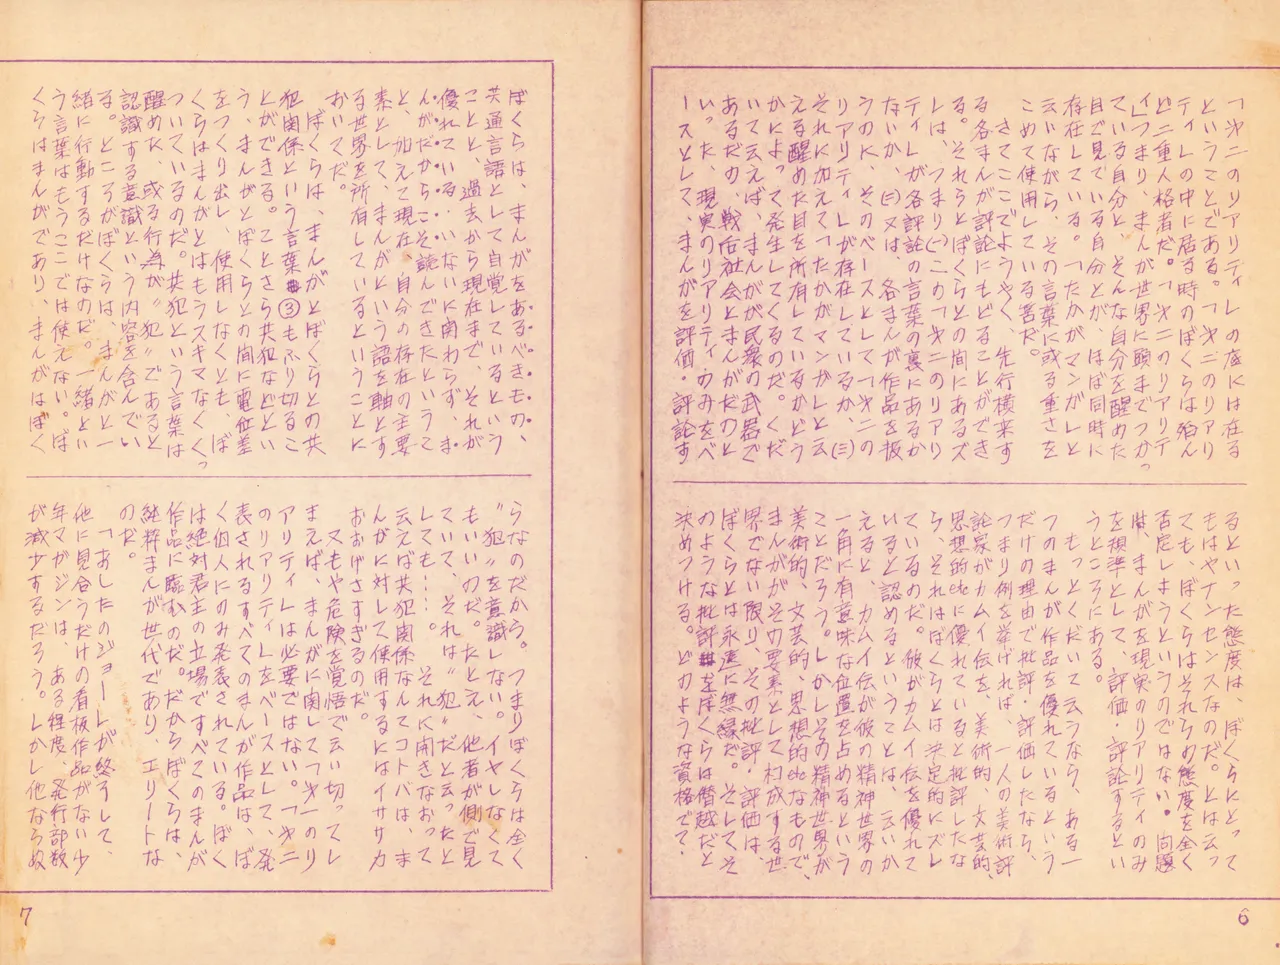 「才二のリアリティ」の底には在る
ということである。「才二のリアリ
ティ」の中に居る時のぼくらは殆ん
ど二重人格者だ。「才二のリアリテ
ィ」つまり、まんが世界に頭までつかっ
ている自分と、そんな自分を醒めた
目で見ている自分とが、ほぼ同時に
存在している。「たかがマンガ」と
云いながら、その言葉に或る重さを
こめて使用している筈だ。
さてここでようやく、先行横来す
る各まんが評論にもどることができ
る。それらとぼくらとの間にあるズ
レは、つまり(一)この「才二のリアリ
ティ」が各評論の言葉の裏にあるか
ないか、(二)又は、各まんが作品を扱
うのに、そのベースとして「才二の
リアリティ」が存在しているか、(三)
それに加えて「たかがマンガ」と云
える醒めた目を所有しているかどう
かによって発生してくるのだ。くだ
いて云えば、まんがが民衆の武器で
あるだの、戦后社会とまんがだのと
いった、現実のリアリティのみをベ
ースとして、まんがを評価・評論す
るといった態度は、ぼくらにとって
もはやナンセンスなのだ。とは云っ
ても、ぼくらはそれらの態度を全く
否定しようというのではない。問題
は、まんがを現実のリアリティのみ
を規準として、評価、評論するとい
うところにある。
もっとくだいて云うなら、ある一
つのまんが作品を優れているという
だけの理由で批評・評価したなら、
つまり例を挙げれば、一人の美術評
論家がカムイ伝を、美術的、文芸的、
思想的etcに優れていると批評したな
ら、それはぼくらとは決定的にズレ
ているのだ。彼がカムイ伝を優れて
いると認めるということは、云いか
えると、カムイ伝が彼の精神世界の
一角に有意味な位置を占めるという
ことだろう。しかしその精神世界が
美術的、文芸的、思想的etcなもので、
まんががその要素として村成する世
界でない限り、その批評・評価は、
ぼくらとは永遠に無縁だ。そしてそ
のような批評をぼくらは僭越だと
決めつける。どのような資格で、
ぼくらは、まんがをあるべきもの、
共通言語として自覚しているという
ことと、過去から現在まで、それが
優れている・いないに関わらず、ま
んがだからこそ読んできたというこ
と、加えて現在、自分の存在の主要
素として、まんがという語を軸とす
る世界を所有しているということに
おいてだ。
ぼくらは、まんがとぼくらとの共
犯関係という言葉③もふり切るこ
とができる。ことさら共犯などとい
う、まんがとぼくらとの間に電位差
をつくり出し、使用しなくとも、ぼ
くらはまんがとはもうスキマなくくっ
ついているのだ。共犯という言葉は
醒めた、或る行為が〝犯〟であると
認識する意識という内容を含んでい
る。ところがぼくらは、まんがと一
緒に行動するだけなのだ。一緒とい
う言葉はもうここでは使えない。ぼ
くらはまんがであり、まんがはぼく
らなのだから。つまりぼくらは全く
〝犯〟を意識しない。イヤしなくて
もいいのだ。たとえ、他者が側で見
ていて、それは〝犯〟だと云ったと
しても……。それに開きなおって
云えば共犯関係なんてコトバは、ま
んがに対して使用するにはイササカ
おおげさすぎるのだ。
又もや危険を覚悟で云い切ってし
まえば、まんがに関して「才一のリ
アリティ」は必要ではない。「才二
のリアリティ」をベースとして、発
表されるすべてのまんが作品は、ぼ
く個人にのみ発表されている。ぼく
は絶対君主の立場ですべてのまんが
作品に臨むのだ。だからぼくらは、
純粋まんが世代であり、エリートな
のだ。
「あしたのジョー」が終了して、
他に見合うだけの看板作品がない少
年マガジンは、ある程度、発行部数
が減少するだろう。しかし他ならぬ
7
6